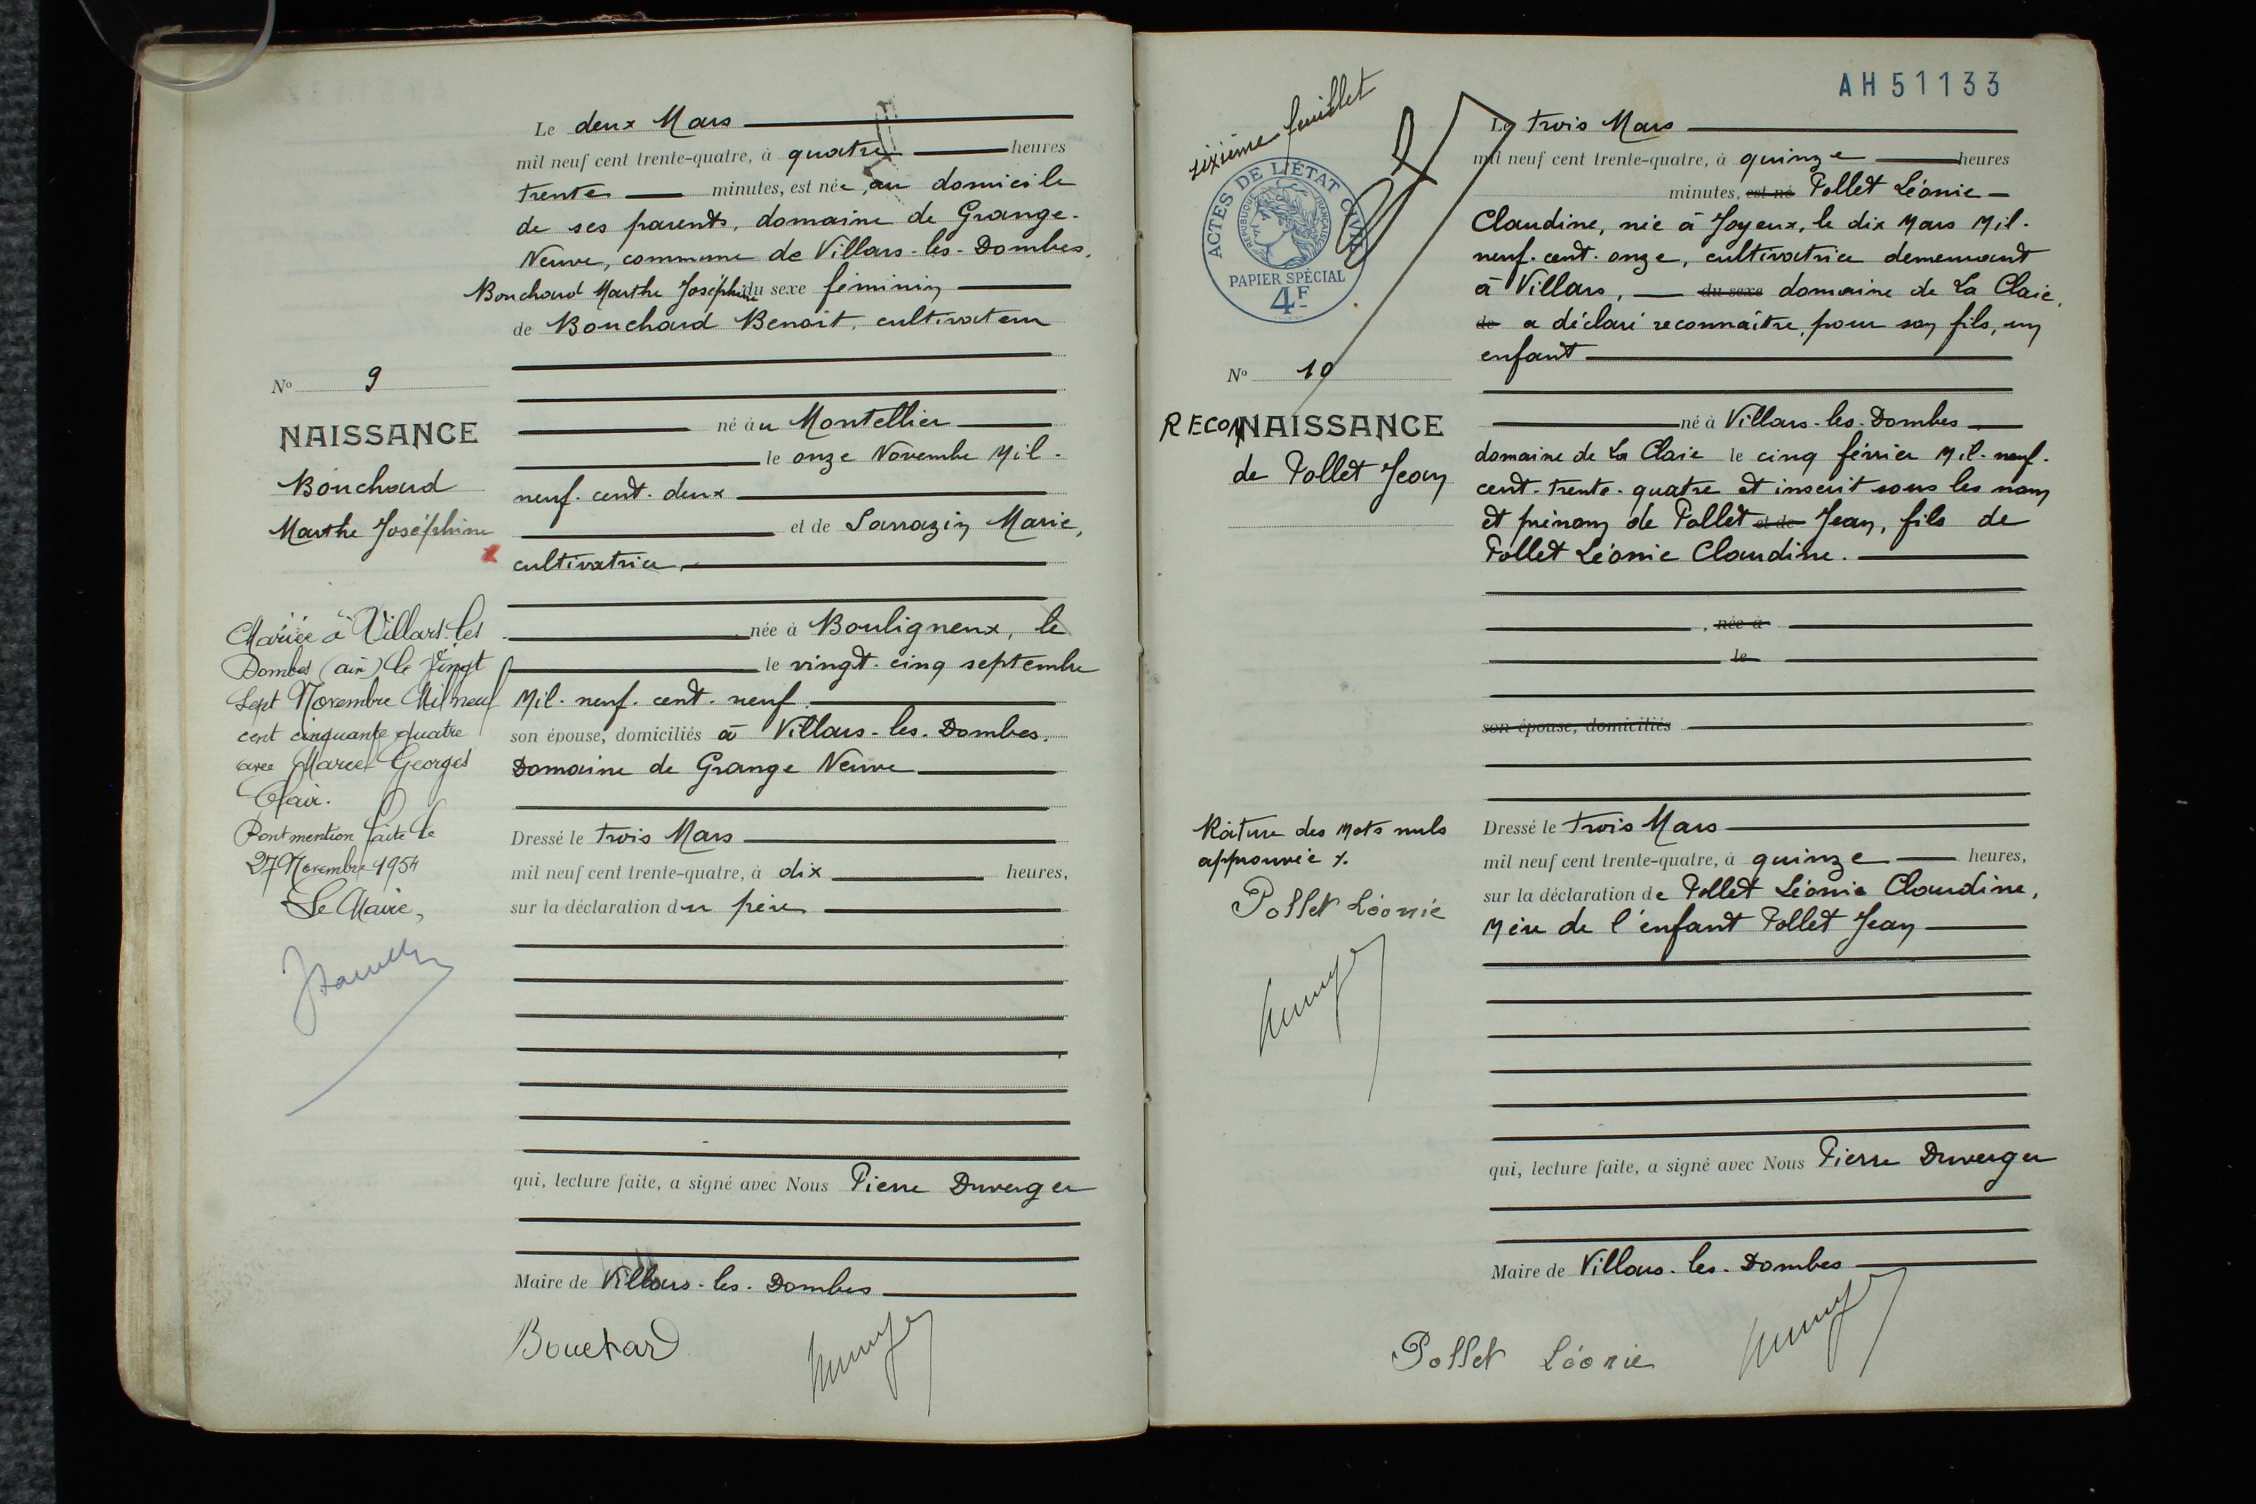 Le deux Mars
mil neuf cent trente-quatre, à quatre heures
trente minutes, est née, au domicile
de ses parents, domaine de Grange-
Neuve, commune de Villars-les-Dombes,
Bouchard Marthe Joséphine du sexe féminin
de Bouchard Benoit, cultivateur
né au Montellier
le onze Novembre Mil-
neuf-cent-deux
et de Sarrazin Marie,
cultivatrice,
née à Bouligneux, le
le vingt-cinq septembre
Mil-neuf-cent-neuf
son épouse, domiciliés à Villars-les-Dombes,
Domaine de Grange Neuve
Dressé le trois Mars
mil neuf cent trente-quatre, à dix heures,
sur la déclaration du père
qui, lecture faite, a signé avec Nous Pierre Duverger
Maire de Villars-les-Dombes
Bouchard
No 9
NAISSANCE
Bouchard
Marthe Joséphine
x
Mariée à Villars-les
Dombes (ain) le Vingt
Sept Novembre Mil neuf
cent cinquante quatre
avec Marcel Georges
Clair.
Dont mention faite le
27 Novembre 1954
Le Maire,
AH51133
sixième feuillet
ACTES DE L'ÉTAT CIVIL
RÉPUBLIQUE FRANÇAISE
PAPIER SPÉCIAL
4F
No 10
RECONNAISSANCE
de Pollet Jean
Le trois Mars
mil neuf cent trente-quatre, à quinze heures
minutes, est né Pollet Léonie
Claudine, née à Joyeux, le dix Mars Mil-
neuf-cent-onze, cultivatrice demeurant
à Villars, du sexe domaine de La Claie,
de a déclaré reconnaître, pour son fils, un
enfant
né à Villars-les-Dombes
domaine de La Claie le cinq février Mil-neuf-
cent-trente-quatre et inscrit sous les nom
et prénom de Pollet et de Jean, fils de
Pollet Léonie Claudine.
, née à
le
son épouse, domiciliés
Dressé le trois Mars
mil neuf cent trente-quatre, à quinze heures,
sur la déclaration de Pollet Léonie Claudine,
Mère de l'enfant Pollet Jean
qui, lecture faite, a signé avec Nous Pierre Duverger
Maire de Villars-les-Dombes
Pollet Léonie
Rature des Mots nuls
approuvée
Pollet Léonie